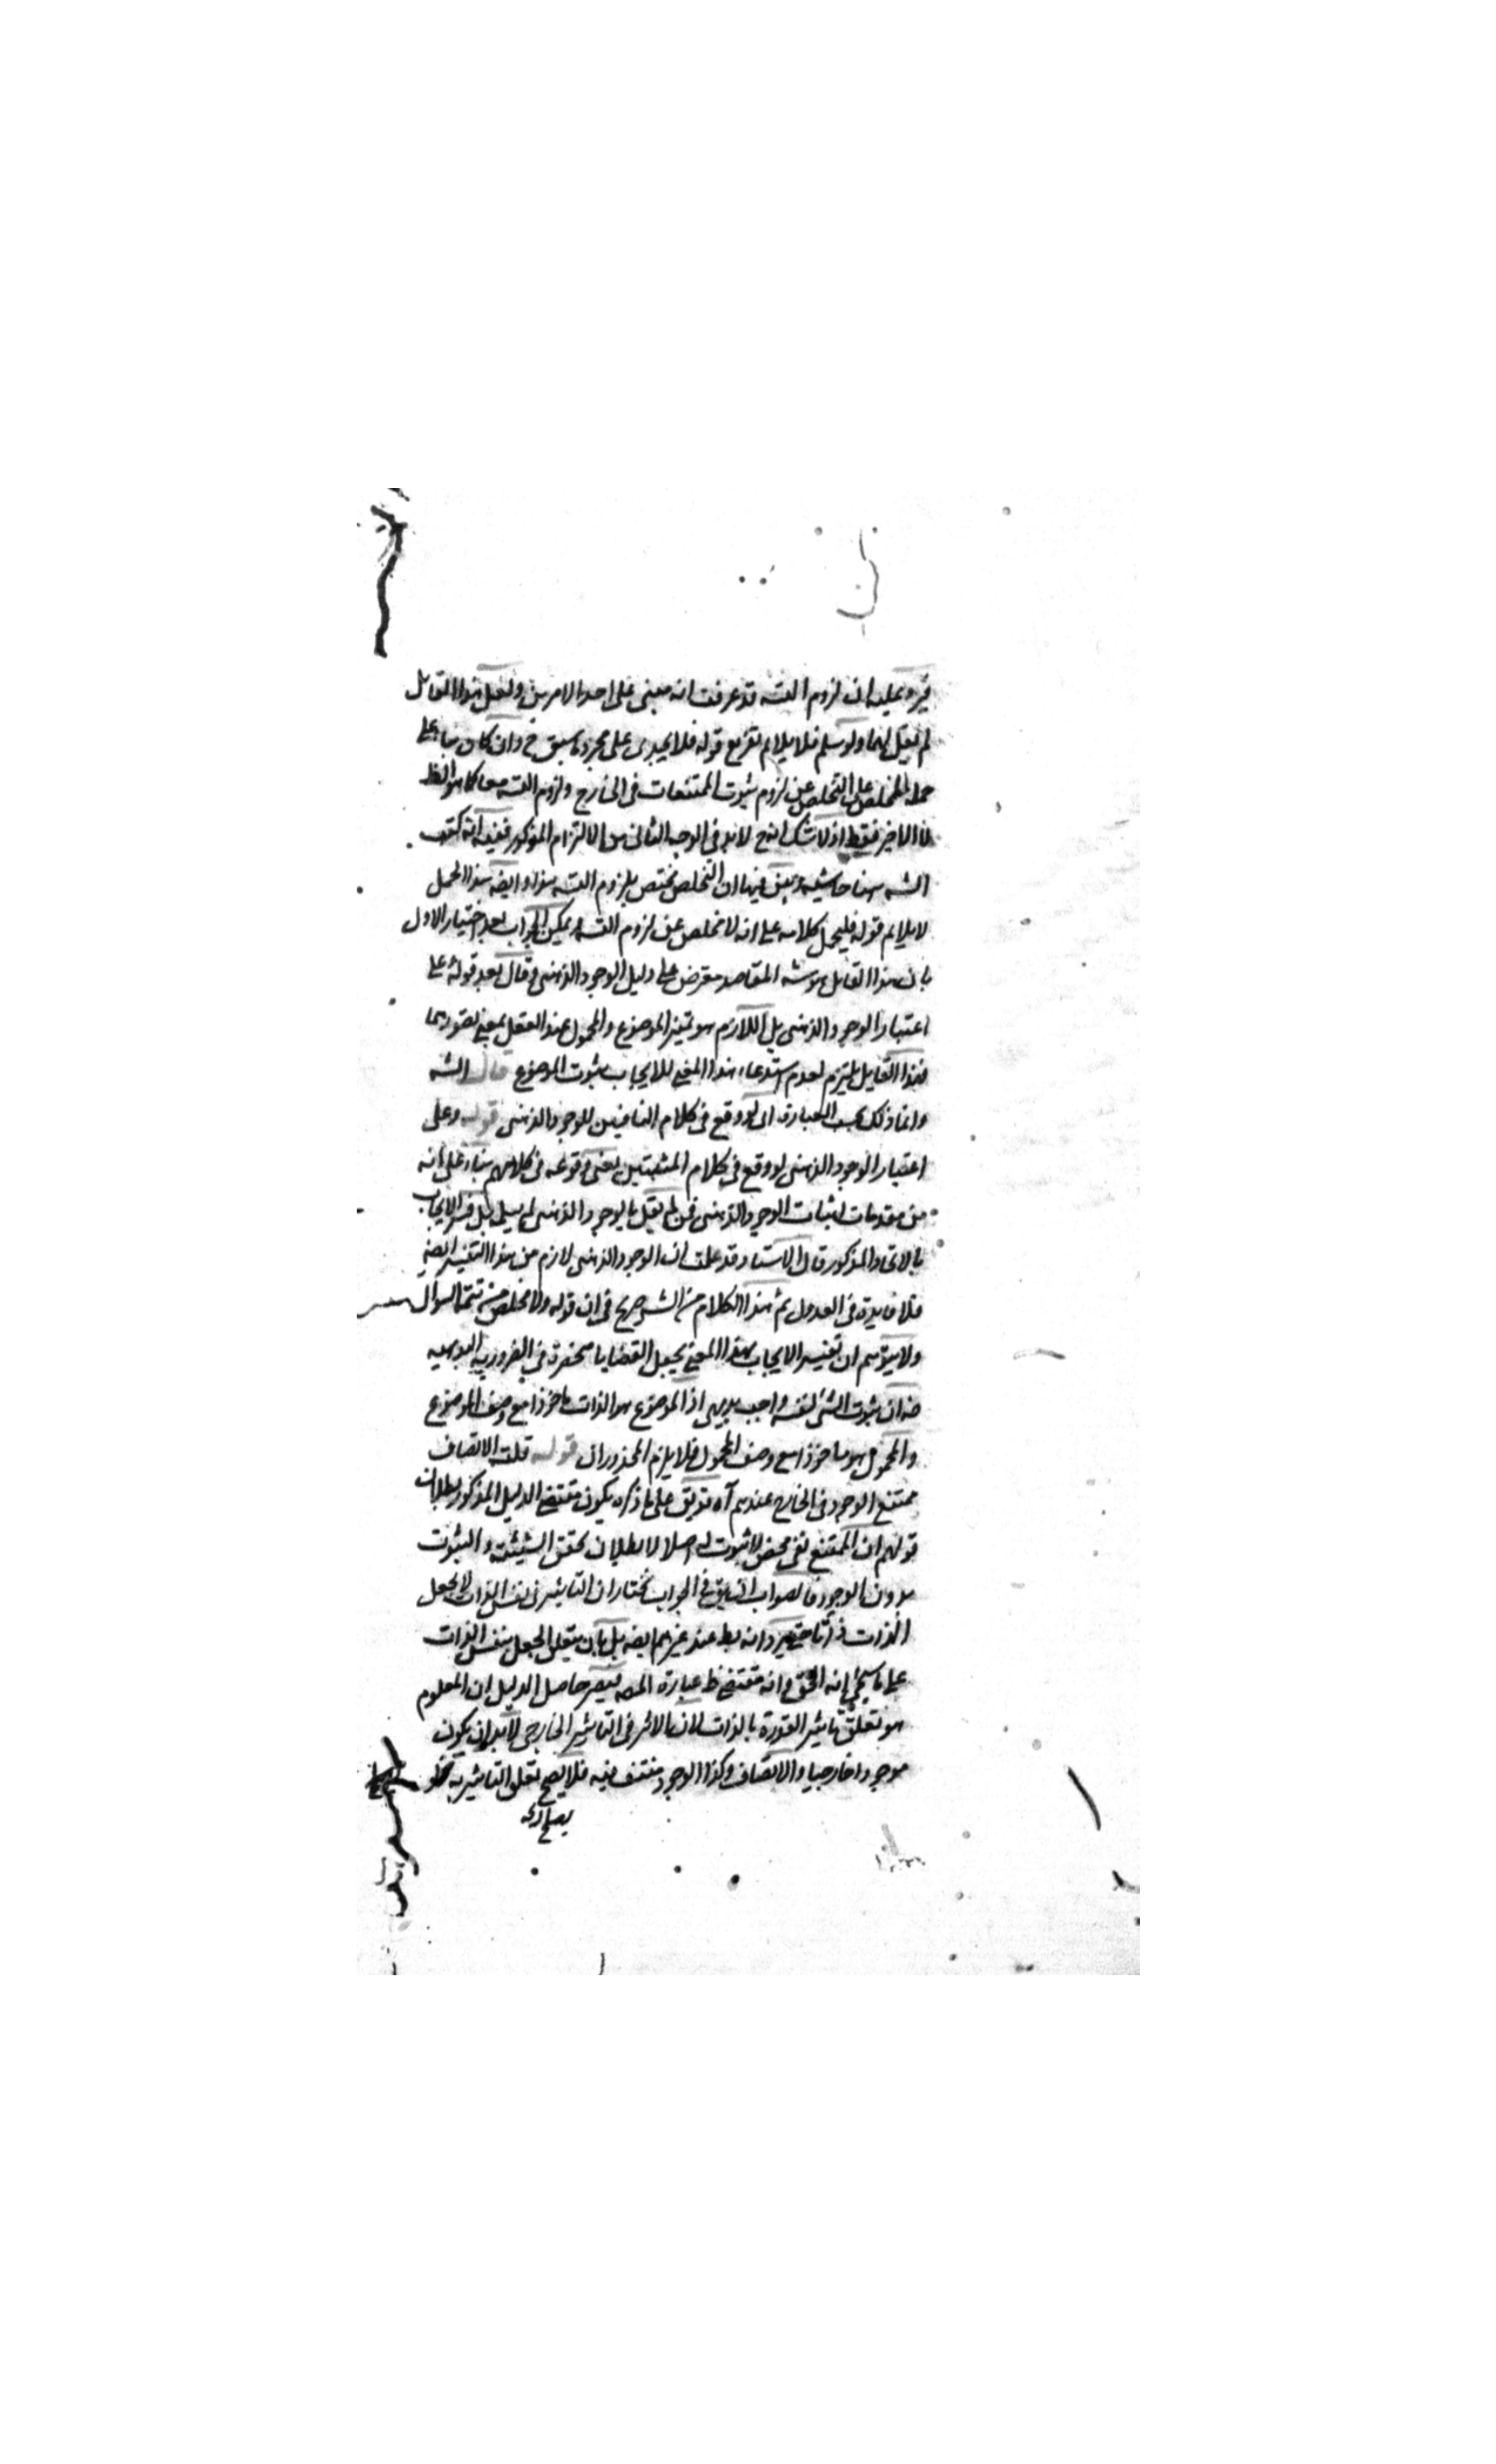 فيرد عليه ان لزوم التسـ قد عرفت انه مبنى على احد الامرين ولعل هذا القائل
لم يقل بهما ولو سلم فلا يلايم تفريع قوله فلا يجدى على مجرد ما سبق ح وان كان بناء على
حمل المخلص على التخلص عن لزوم ثبوت الممتنعات فى الخارج ولزوم التسـ معا كما هو الظ
لا الاخير فقط اذ لا شك انه ح لا بد فى الوجه الثانى من الالتزام المذكور ففيه انه كتب
الشـ هنا حاشية وبين فيها ان التخلص مختص بلزوم التسـ هذا وايضـ هذا الحمل
لا يلايم قوله فليحمل كلامه على انه لا مخلص عن لزوم التسـ ويمكن الجواب بعد اختيار الاول
بان هذا القائل وهو شـ المقاصد معترض على دليل الوجود الذهنى وقال بعد قوله على
اعتبار الوجود الذهنى بل اللازم هو تميز الموضوع والمحمول عند العقل بمعنى تصورهما
فهذا القايل يلتزم لعدم استدعاء هذا المعنى للايجاب ثبوت الموضوع قال الشـ
وانما ذلك بحسب العبارة اى لو وقع فى كلام النافين للوجود الذهنى قوله وعلى
اعتبار الوجود الذهنى لو وقع فى كلام المثبتين يعنى وقوعه فى كلامهم بناء على انه
من مقدمات اثبات الوجود الذهنى فمن لم يقل بالوجود الذهنى لم يسلم بل فسر الايجاب
بالاتحاد المذكور قال الاستاد قد علمت ان الوجود الذهنى لازم من هذا التفسير ايضـ
فلا فايدة فى العدول ثم هذا الكلام من الشـ صريح فى ان قوله ولا مخلص من تتمة السؤال
ولا يتوهم ان تفسير الايجاب بهذا المعنى يجعل القضايا منحصرة فى الضرورية البديهية
ضـ ان ثبوت الشئ لنفسه واجب بديهى اذ الموضوع هو الذات ماخوذا مع وصف الموضوع
والمحمول هو ماخوذا مع وصف المحمول فلا يلزم المحذوران قوله قلت الاتصاف
ممتنع الوجود فى الخارج عندهم آه توفيق على ما ذكره يكون مقتضى الدليل المذكور بطلان
قولهم ان الممتنع نفى محض لا ثبوت له اصلا لا بطلان تحقق الشيئية والثبوت
بدون الوجود فالصواب ان يق فى الجواب نختار ان التاثير فى نفس الذات لا بجعل
الذات ذاتا حتى يرد انه بط عند غيرهم ايضـ بل بان يتعلق الجعل بنفس الذات
على ما سيجئ انه الحق وانه مقتضى ظ عبارة المصـ فيصير حاصل الدليل ان المعلوم
هو تعلق تاثير القدرة بالذات لان الاثر فى التاثير الخارجى لا بد ان يكون
موجودا خارجيا والاتصاف وكذا الوجود منتف فيه فلا يصح تعلق التاثير به
يصلح ان